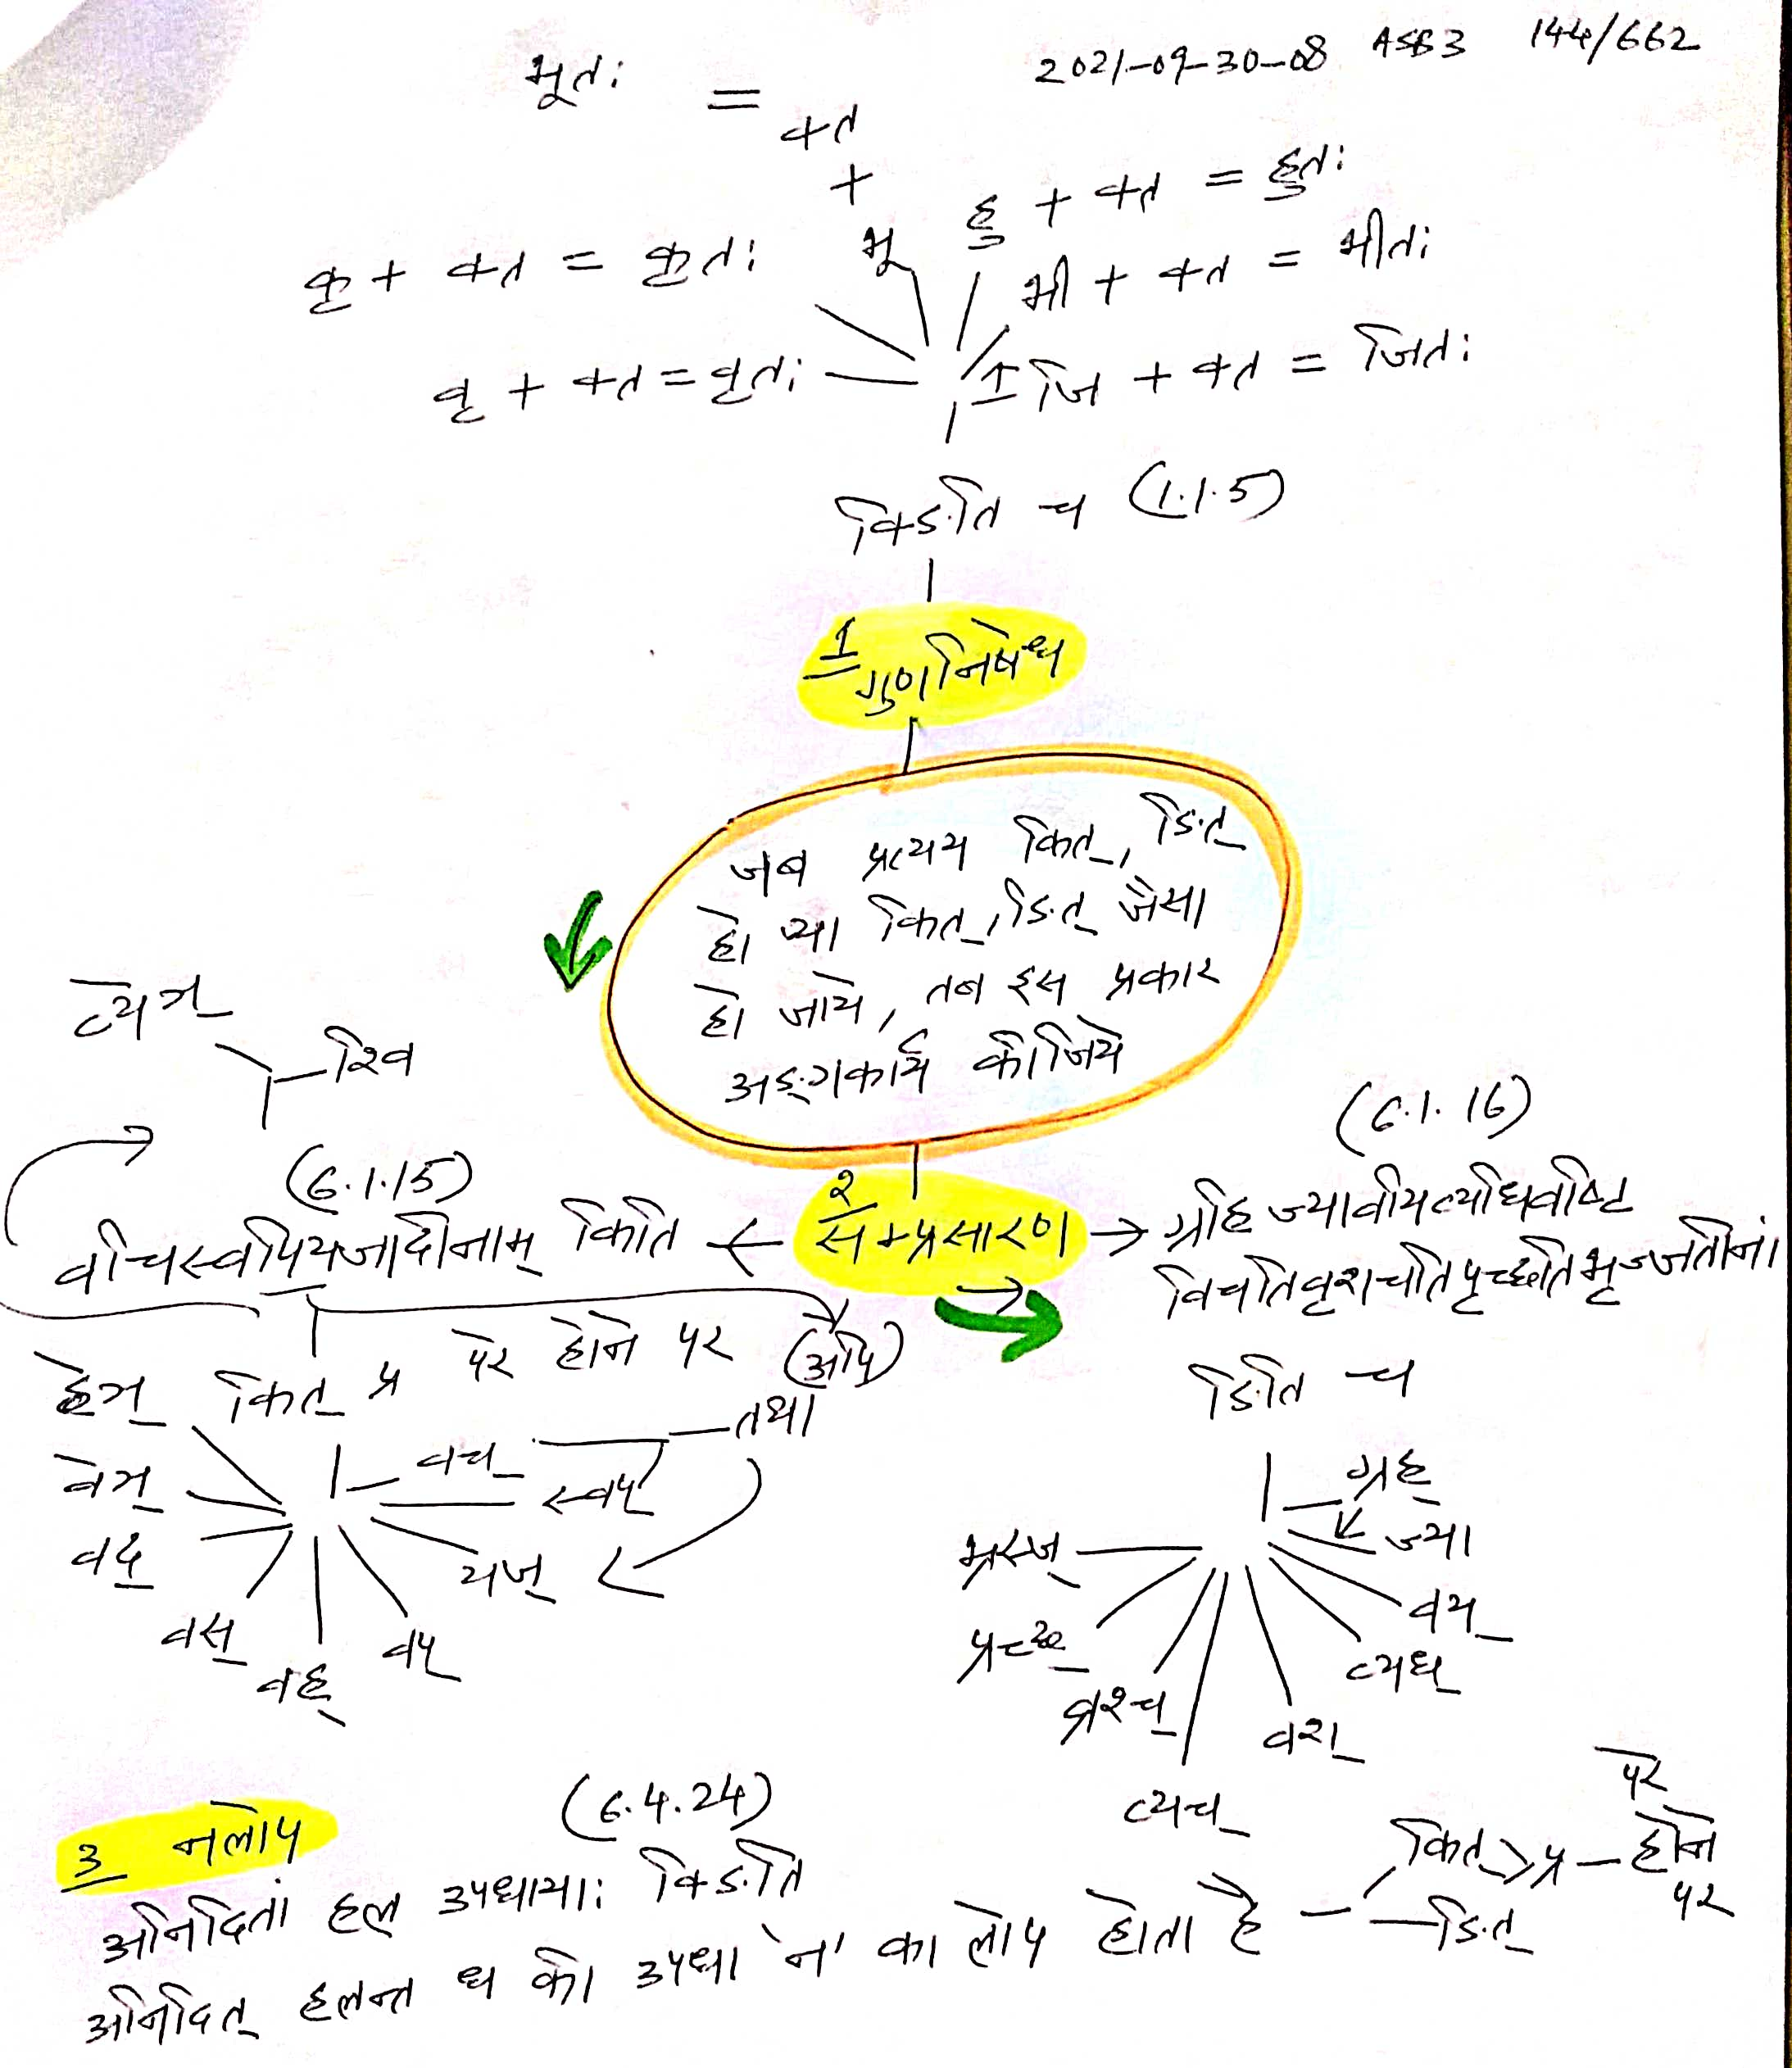 2021-09-30-08 ASB3 144/662
भूतः = क्त + भू
हु + क्त = हुतः
कृ + क्त = कृतः
भी + क्त = भीतः
वृ + क्त = वृतः
1 जि + क्त = जितः
क्ङिति च (1.1.5)
1 गुणनिषेध
जब प्रत्यय कित्, ङित्
हो या कित्, ङित् जैसा
हो जाये, तब इस प्रकार
अङ्गकार्य कीजिये
व्येञ्
श्वि
(6.1.15)
वचिस्वपियजादीनाम् किति ← २ सम्प्रसारण →
(6.1.16)
ग्रहिज्यावयिव्यधिवष्टि
विचतिवृश्चतिपृच्छतिभृज्जतीनां
ङिति च
कित् प्र परे होने पर (अपि)
तथा
वच्
स्वप्
यज्
वप्
वह्
वस्
वद्
वेञ्
ह्वेञ्
ग्रह्
ज्या
वय्
व्यध्
वश्
व्यच्
व्रश्च्
प्रच्छ्
भ्रस्ज्
3 नलोप (6.4.24)
अनिदितां हल उपधायाः क्ङिति
अनिदित् हलन्त ध की उपधा 'न' का लोप होता है — कित् > प्र — परे होने पर
ङित्